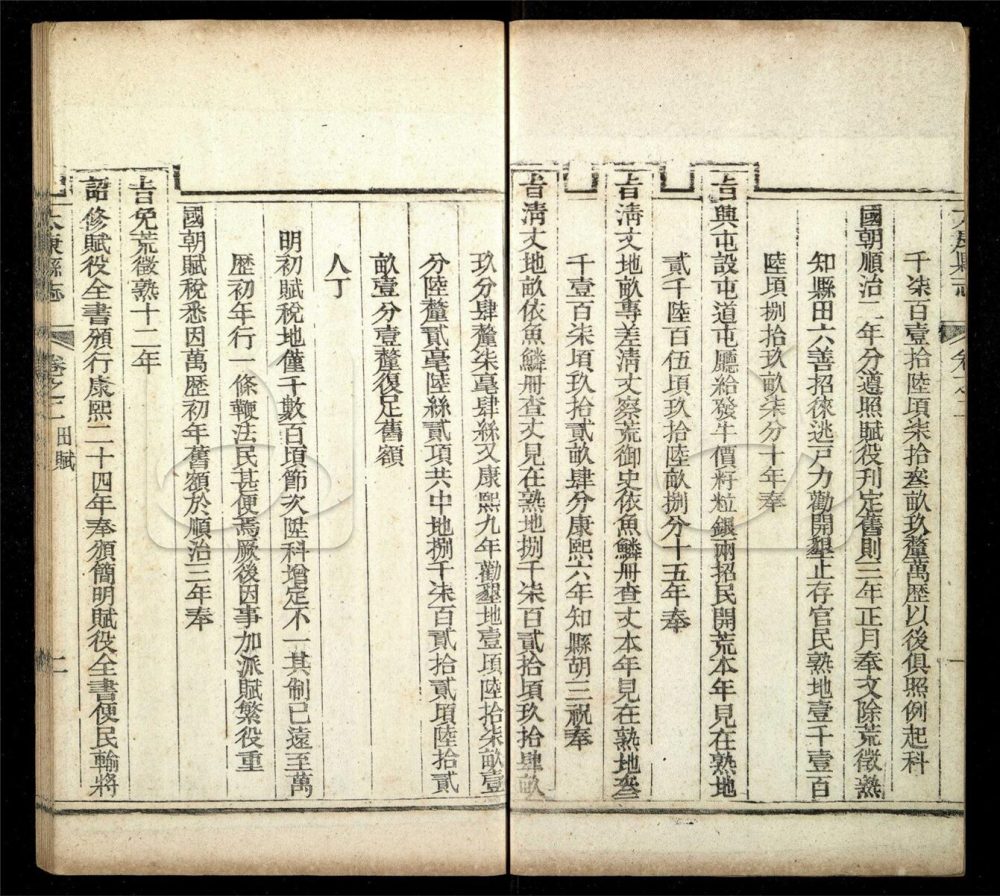 千柒百壹拾陸頃柒拾叄畝玖釐萬歷以後俱照例起科
國朝順治二年分遵照賦役刊定舊則三年正月奉文除荒徵熟
知縣田六善招徠逃戶力勸開墾止存官民熟地壹千壹百
陸頃捌拾玖畝柒分十年奉
旨興屯設屯道屯廳給發牛價籽粒銀兩招民開荒本年見在熟地
貳千陸百伍頃玖拾陸畝捌分十五年奉
旨淸丈地畝專差淸丈察荒御史依魚鱗册查丈本年見在熟地叄
千壹百柒頃玖拾貳畝肆分康熙六年知縣胡三祝奉
旨淸丈地畝依魚鱗册查丈見在熟地捌千柒百貳拾頃玖拾肆畝
玖分肆釐柒毫肆絲又康熙九年勸墾地壹頃陸拾柒畝壹
分陸釐貳毫陸絲貳項共中地捌千柒百貳拾貳頃陸拾貳
畝壹分壹釐復足舊額
人丁
明初賦稅地僅千數百頃節次陞科增定不一其制已遠至萬
歷初年行一條鞭法民甚便焉厥後因事加派賦繁役重
國朝賦稅悉因萬歷初年舊額於順治三年奉
旨免荒徵熟十二年
詔修賦役全書頒行康熙二十四年奉頒簡明賦役全書便民輸將
太康縣志 卷之二 田賦 二